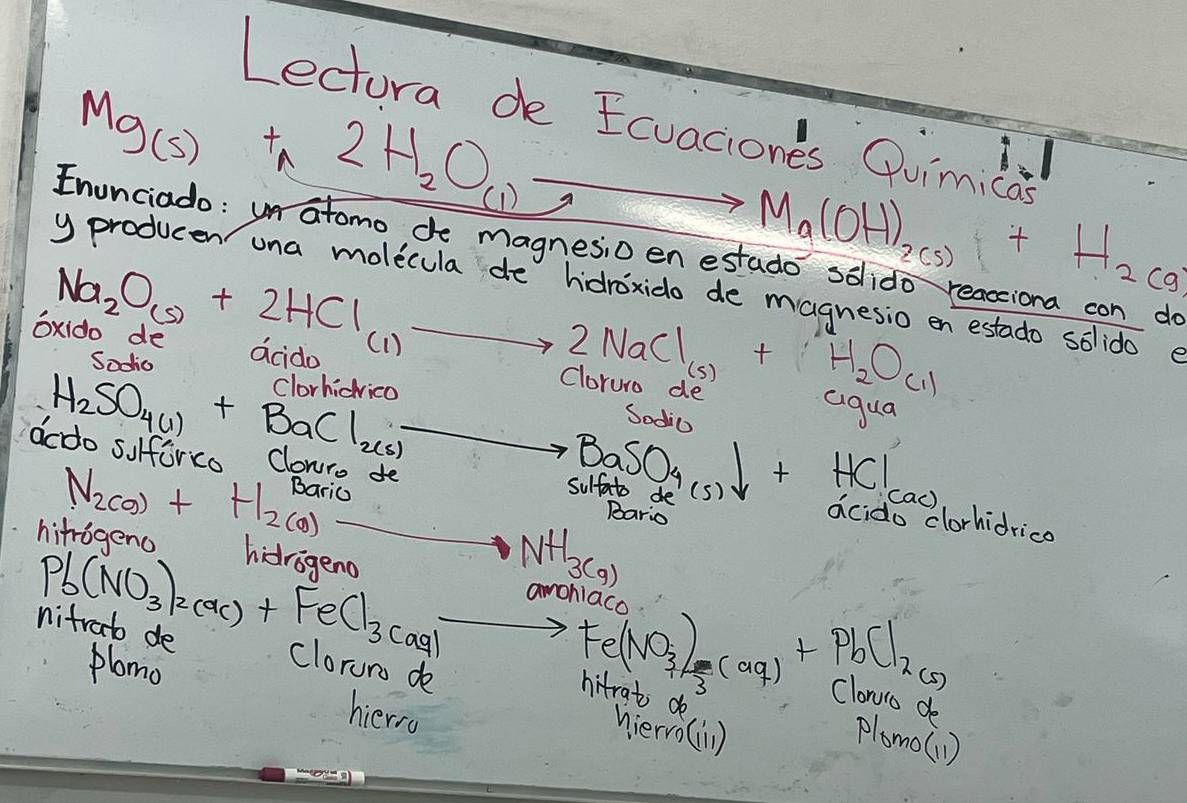 Lectura de Ecuaciones Químicas
Mg(s) + 2H₂O(l) → Mg(OH)₂(s) + H₂(g)
Enunciado: un átomo de magnesio en estado sólido reacciona con do
y producen una molécula de hidróxido de magnesio en estado sólido e
Na₂O(s) + 2HCl(l) → 2NaCl(s) + H₂O(l)
óxido de Sodio ácido Clorhídrico Cloruro de Sodio agua
H₂SO₄(l) + BaCl₂(s) → BaSO₄(s)↓ + HCl(ac)
ácido sulfúrico Cloruro de Bario sulfato de Bario ácido clorhídrico
N₂(g) + H₂(g) → NH₃(g)
nitrógeno hidrógeno amoniaco
Pb(NO₃)₂(ac) + FeCl₃(aq) → Fe(NO₃)₃(aq) + PbCl₂(s)
nitrato de plomo Cloruro de hierro nitrato de hierro(iii) Cloruro de Plomo(ii)